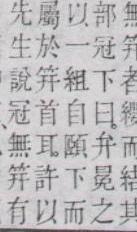 無笄者纓而結其
部冠下曰。弁冕之
以一組自頤下而
屬於笄首耳。許以
先生說冠無笄有